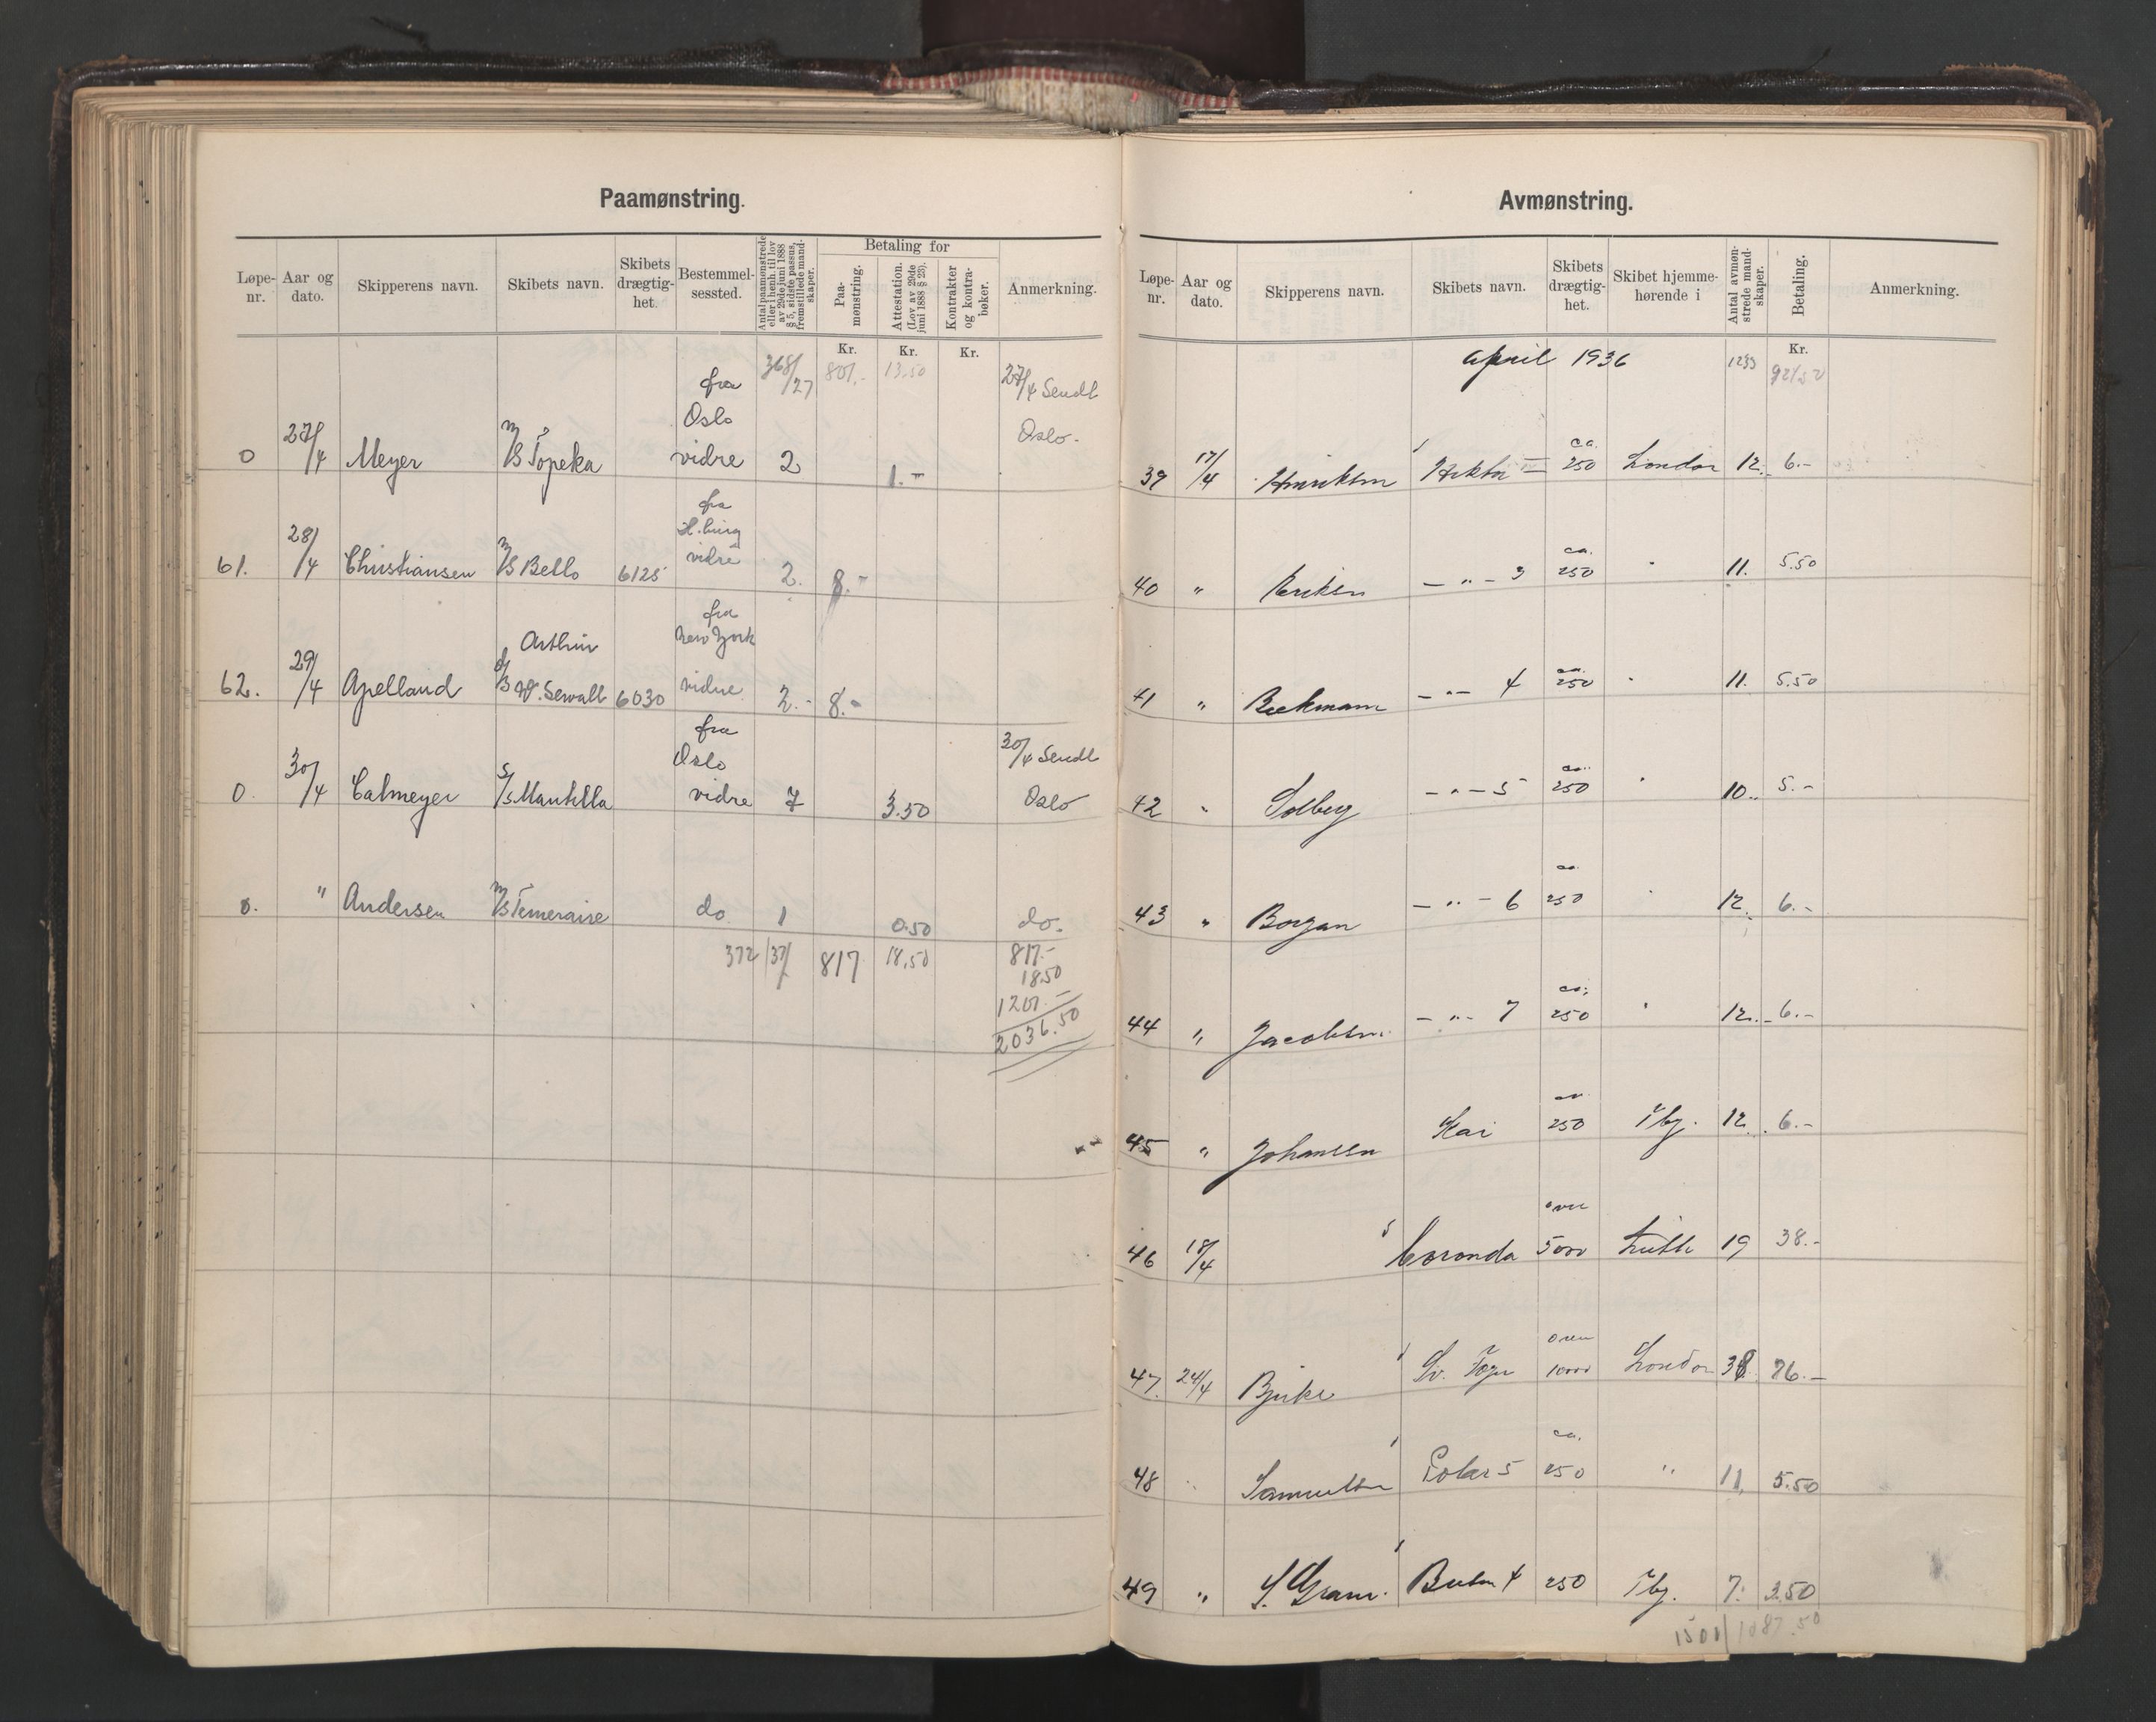 Paamønstring.
Løpe-nr. Aar og dato. Skipperens navn. Skibets navn. Skibets drægtig-het. Bestemmel-sessted. Antal paamønstrede eller i henh. til lov av 29de juni 1888 § 5, sidste passus, fremstillede mand-skaper. Betaling for Paa-mønstring. Attestation. (Lov av 29de juni 1888 § 23). Kontrakter og kontra-bøker. Anmerkning.
Kr. Kr. Kr.
368/27 801.- 13.50
0 27/4 Meyer M/S Topeka fra Oslo vidre 2 1.- 27/4 Sendt Oslo.
61. 28/4 Christiansen M/S Bello 6125 fra H.burg vidre 2. 8.-
62. 29/4 Apelland Arthur W. Sewall 6030 fra New York vidre 2.- 8.-
0. 30/4 Calmeyer S/S Mantilla fra Oslo vidre 7 3.50 30/4 Sendt Oslo
0. " Andersen M/S Temeraire do 1 0.50 do.
372/37 817 18,50 817.-
18.50
1201.-
2036.50
Avmønstring.
Løpe-nr. Aar og dato. Skipperens navn. Skibets navn. Skibets drægtig-het. Skibet hjemme-hørende i Antal avmøn-strede mand-skaper. Betaling. Anmerkning.
Kr.
april 1936 1233 921.50
39 17/4 Henriksen Hektor ca. 250 London 12. 6.-
40 " Eriksen - " - 3 ca. 250 " 11. 5.50
41 " Beckmann - " - 4 ca. 250 " 11. 5.50
42 " Solberg - " - 5 ca. 250 " 10. 5.-
43 " Borgan - " - 6 ca. 250 " 12. 6.-
44 " Jacobsen - " - 7 ca. 250 " 12. 6.-
45 " Johansen Kai ca. 250 Tbg. 12. 6.-
46 18/4 Coronda over 5000 Leith 19 38.-
47. 24/4 Bjerke Sv. Foyn over 1000 London 38 76.-
48 " Samuelsen Polar 5 ca. 250 " 11. 5.50
49 " S. Gram. 4 250 Tbg. 7. 3.50
1501/1087.50